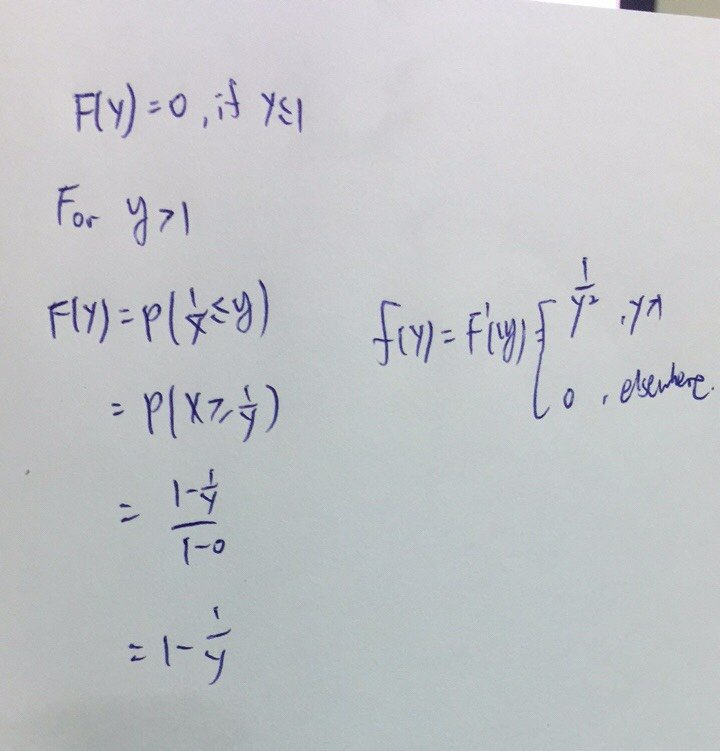 F(y) = 0, if y ≤ 1
For y > 1
F(y) = P(1/X ≤ y)
= P(X ≥ 1/y)
= (1 - 1/y)/(1 - 0)
= 1 - 1/y
f(y) = F'(y) = { 1/y², y > 1
0, elsewhere.